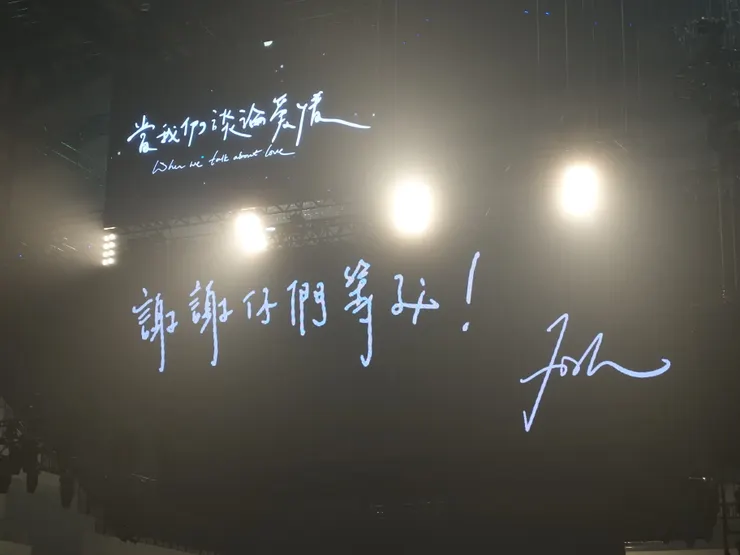 當我們談論愛情
When we talk about love
謝謝仔們等我!
Josh